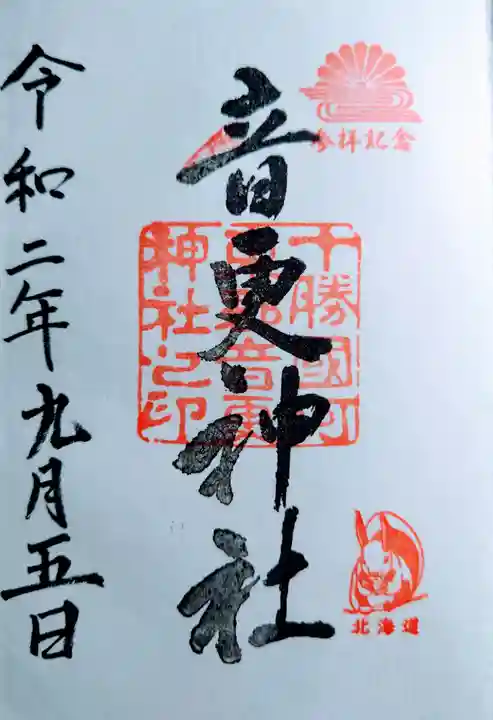 参拝記念
音更神社
十勝國河
神社之印
北海道
令和二年九月五日